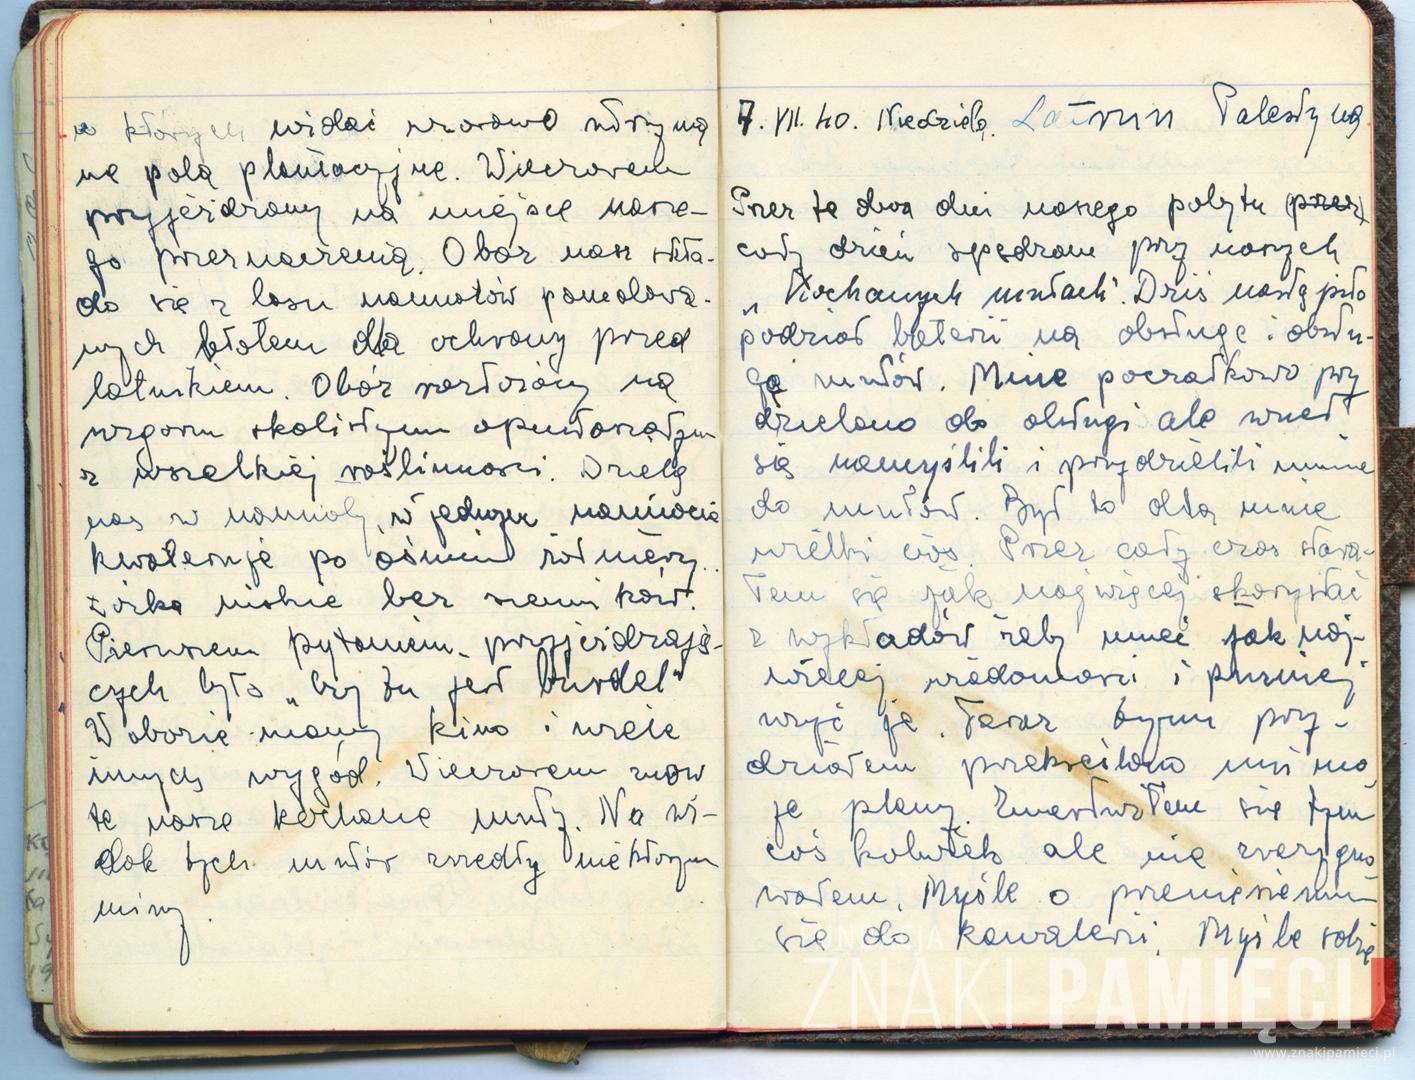 w których widać wzorowo utrzyma
ne pola plantacyjne. Wieczorem
przyjeżdżamy na miejsce nasze-
go przeznaczenia. Obóz nasz skła-
da się z lasu namiotów pomalowa-
nych błotem dla ochrony przed
lotnikiem. Obóz rozłożony na
wzgórzu skalistym opustoszałym
z wszelkiej roślinności. Dzielą
nas w namioty w jednym namiocie
kwateruje po ośmiu żołnierzy.
łóżka niskie bez sienników.
Pierwszem pytaniem przyjeżdżają-
cych było „czy tu jest burdel"
W obozie mamy kino i wiele
innych wygód. Wieczorem znów
te nasze kochane muły. Na wi-
dok tych mułów zrzedły niektórym
miny.
7. VII. 40. Niedziela. Latrun Palestyna
Przez te dwa dni naszego pobytu (przez)
cały dzień spędzam przy naszych
„Kochanych mułach". Dziś nastąpiło
podział baterii na obsługę i obsłu-
gę mułów. Mnie początkowo przy
dzielono do obsługi ale wnet
się namyślili i przydzielili mnie
do mułów. Był to dla mnie
wielki cios. Przez cały czas stara-
łem się jak najwięcej skorzystać
z wykładów żeby mieć jak naj-
więcej wiadomości i puźniej
użyć je. Teraz tym przy-
działem pokrzyżowano mi mo
je plany. Zmartwiłem się tym
coś kolwiek ale nie zrezygno
wałem. Myślę o przeniesieniu
się do kawalerii. Myślę sobie
FUNDACJA
ZNAKI PAMIĘCI
www.znakipamieci.pl